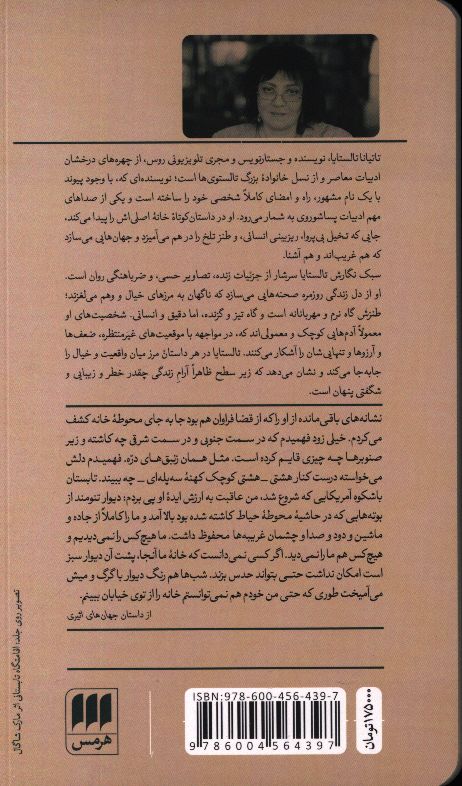 تاتیانا تالستایا، نویسنده و جستارنویس و مجری تلویزیونی روس، از چهره‌های درخشان
ادبیات معاصر و از نسل خانوادهٔ بزرگ تالستوی‌ها است؛ نویسنده‌ای که، با وجود پیوند
با یک نام مشهور، راه و امضای کاملاً شخصی خود را ساخته است و یکی از صداهای
مهم ادبیات پساشوروی به شمار می‌رود. او در داستان‌کوتاهْ خانهٔ اصلی‌اش را پیدا می‌کند،
جایی که تخیل بی‌پروا، ریزبینی انسانی، و طنز تلخ را در هم می‌آمیزد و جهان‌هایی می‌سازد
که هم غریب‌اند و هم آشنا.
سبک نگارش تالستایا سرشار از جزئیات زنده، تصاویر حسی، و ضرباهنگی روان است.
او از دل زندگی روزمره صحنه‌هایی می‌سازد که ناگهان به مرزهای خیال و وهم می‌لغزند؛
طنزش گاه نرم و مهربانانه است و گاه تیز و گزنده، اما دقیق و انسانی. شخصیت‌های او
معمولاً آدم‌هایی کوچک و معمولی‌اند که، در مواجهه با موقعیت‌های غیرمنتظره، ضعف‌ها
و آرزوها و تنهایی‌شان را آشکار می‌کنند. تالستایا در هر داستانْ مرز میان واقعیت و خیال را
جابه‌جا می‌کند و نشان می‌دهد که زیر سطح ظاهراً آرامِ زندگی چقدر خطر و زیبایی و
شگفتی پنهان است.
نشانه‌های باقی‌مانده از او را که از قضا فراوان هم بود جا به جای محوطهٔ خانه کشف
می‌کردم. خیلی زود فهمیدم که در سمت جنوبی و در سمت شرقی چه کاشته و زیر
صنوبرها چه چیزی قایم کرده است. مثل همان زنبق‌های درّه. فهمیدم دلش
می‌خواسته درست کنار هشتی ـ هشتی کوچک کهنهٔ سه‌پله‌ای ـ چه ببیند. تابستان
باشکوه آمریکایی که شروع شد، من عاقبت به ارزش ایدهٔ او پی بردم؛ دیوار تنومند از
بوته‌هایی که در حاشیهٔ محوطهٔ حیاط کاشته شده بود بالا آمد و ما را کاملاً از جاده و
ماشین و دود و صدا و چشمان غریبه‌ها محفوظ داشت. ما هیچ‌کس را نمی‌دیدیم و
هیچ‌کس هم ما را نمی‌دید. اگر کسی نمی‌دانست که خانهٔ ما آنجا، پشت آن دیوار سبز
است امکان نداشت حتی بتواند حدس بزند. شب‌ها هم رنگ دیوار با گرگ و میش
می‌آمیخت طوری که حتی من خودم هم نمی‌توانستم خانه را از توی خیابان ببینم.
از داستان جهان‌های اثیری
تصویر روی جلد: اقامتگاه تابستانی اثر مارک شاگال
هرمس
ISBN: 978-600-456-439-7
9 786004 564397
۱۷۵۰۰۰ تومان